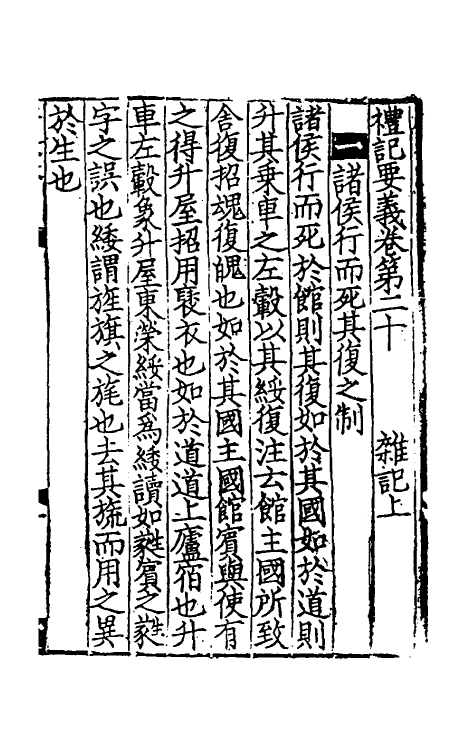 禮記要義卷第二十　　雜記上
一　諸侯行而死其復之制
諸侯行而死於館則其復如於其國如於道則
升其乗車之左轂以其綏復注云館主國所致
舍復招魂復魄也如於其國主國館賓與使有
之得升屋招用襃衣也如於道道上廬宿也升
車左轂象升屋東榮綏當爲緌讀如蕤賓之蕤
字之誤也緌謂旌旗之旄也去其旒而用之異
於生也